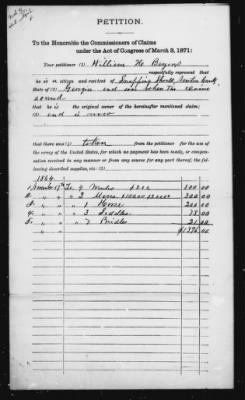 PETITION.
To the Honorable the Commissioners of Claims
under the Act of Congress of March 3, 1871:
Your petitioner (1) William H.
respectfully represent that
he is a citizen and resident of Snapping Shoals, Newton County
State of (2) Georgia and was when the claims
accrued
that he is the original owner of the hereinafter mentioned claim;
(3) and is never
that there was (4) taken from the petitioner for the use of
the army of the United States, for which no payment has been made, or compen-
sation received in any manner or from any source for any part thereof, the fol-
lowing described supplies, viz: (5)
1864
1. November 17th To 4 Mules $200 800.00
2. " " " 2 300.00
3. " " " 1 Horse 200.00
4. " " " 3 Saddles
5. " " " 7 Bridles 21.00